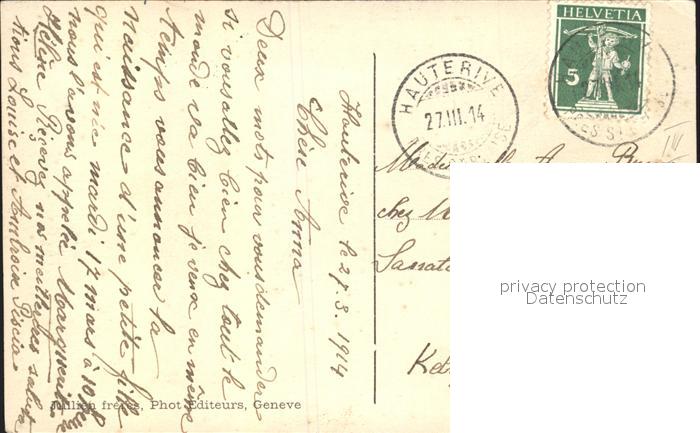 Hauterive le 27.3.1914
Chère Anna
Deux mots pour vous demander
si vous allez bien chez tout le
monde va bien je veux en même
temps vous annoncer la
naissance d'une petite fille
qui est née mardi 17 mars à 10 h
nous l'avons appelée Marguerite
Hélène Recevez nos meilleures saluta
tions Louise et Ambroise
Jullien frères, Phot Editeurs, Genève
HELVETIA
5
HAUTERIVE
27.III.14
chez
privacy protection
Datenschutz